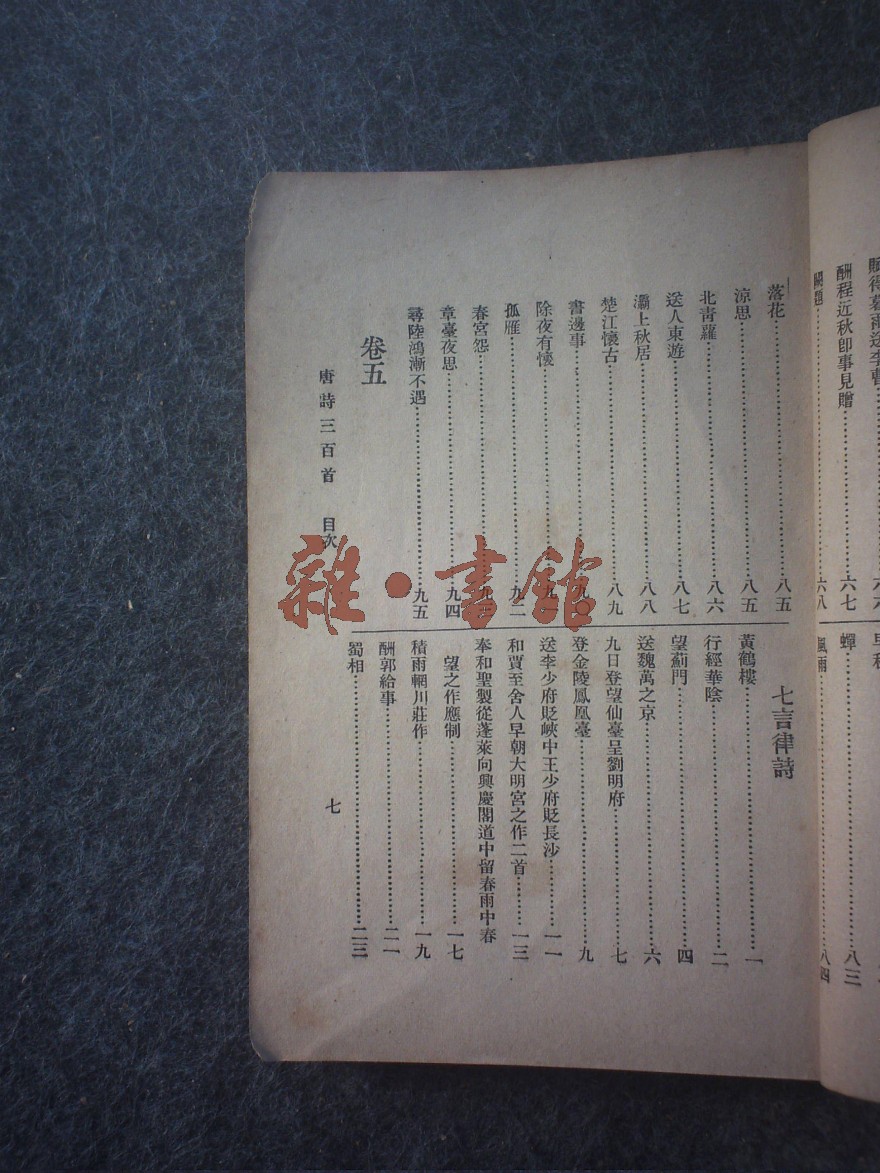 賦得暮雨送李曹……六六
酬程近秋卽事見贈……六七
闕題……六八
蟬……八三
風雨……八四
落花……八五
涼思……八五
北青蘿……八六
送人東遊……八七
灞上秋居……八八
楚江懷古……八九
書邊事……九〇
除夜有懷
孤雁……九二
春宮怨
章臺夜思……九四
尋陸鴻漸不遇……九五
卷五
七言律詩
黃鶴樓……一
行經華陰……二
望薊門……四
送魏萬之京……六
九日登望仙臺呈劉明府……七
登金陵鳳凰臺……九
送李少府貶峽中王少府貶長沙……一一
和賈至舍人早朝大明宮之作二首……一三
奉和聖製從蓬萊向興慶閣道中留春雨中春
望之作應制……一七
積雨輞川莊作……一九
酬郭給事……二一
蜀相……二三
唐詩三百首 目次
七
雜·書館